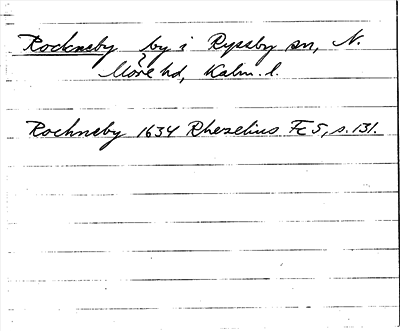 Rockneby by i Ryssby sn, N.
Möre hd, Kalm. l.
Rockneby 1634 Rhezelius Fc 5, s. 131.